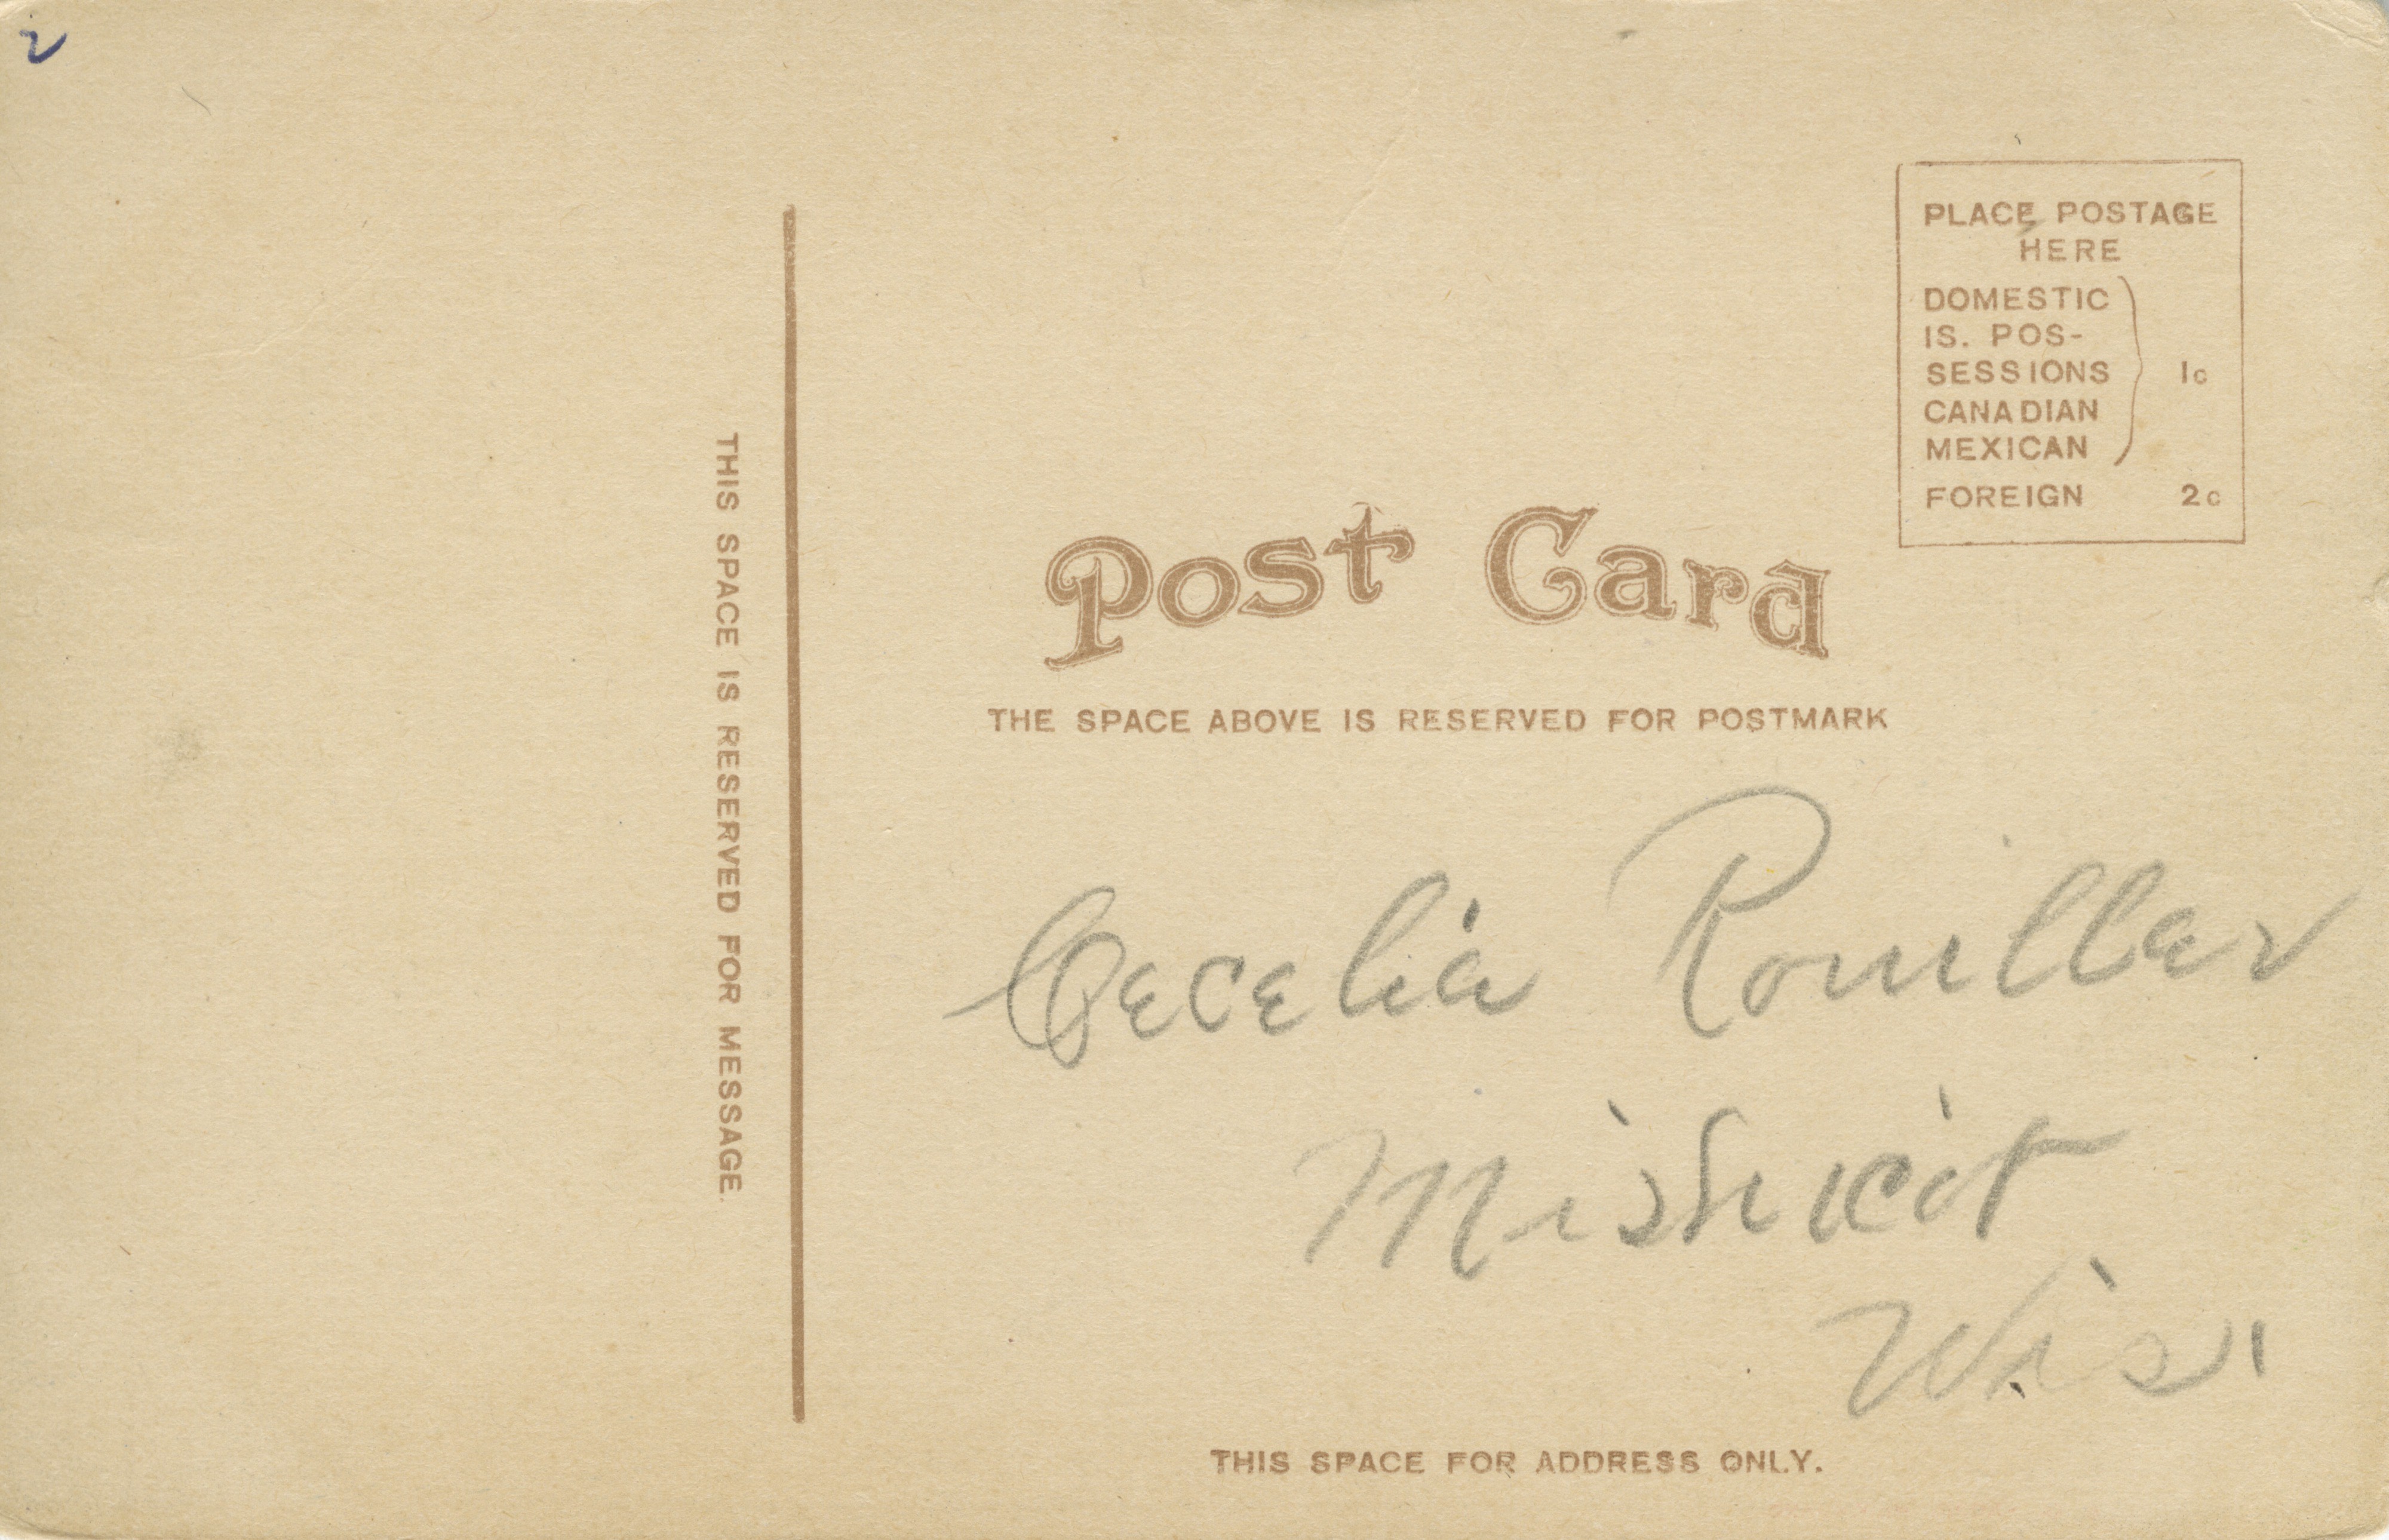 PLACE POSTAGE
HERE
DOMESTIC
IS. POS-
SESSIONS
CANADIAN
MEXICAN
1c
FOREIGN 2c
Post Card
THE SPACE ABOVE IS RESERVED FOR POSTMARK
THIS SPACE IS RESERVED FOR MESSAGE.
Cecelia
Mishicot
Wis.
THIS SPACE FOR ADDRESS ONLY.